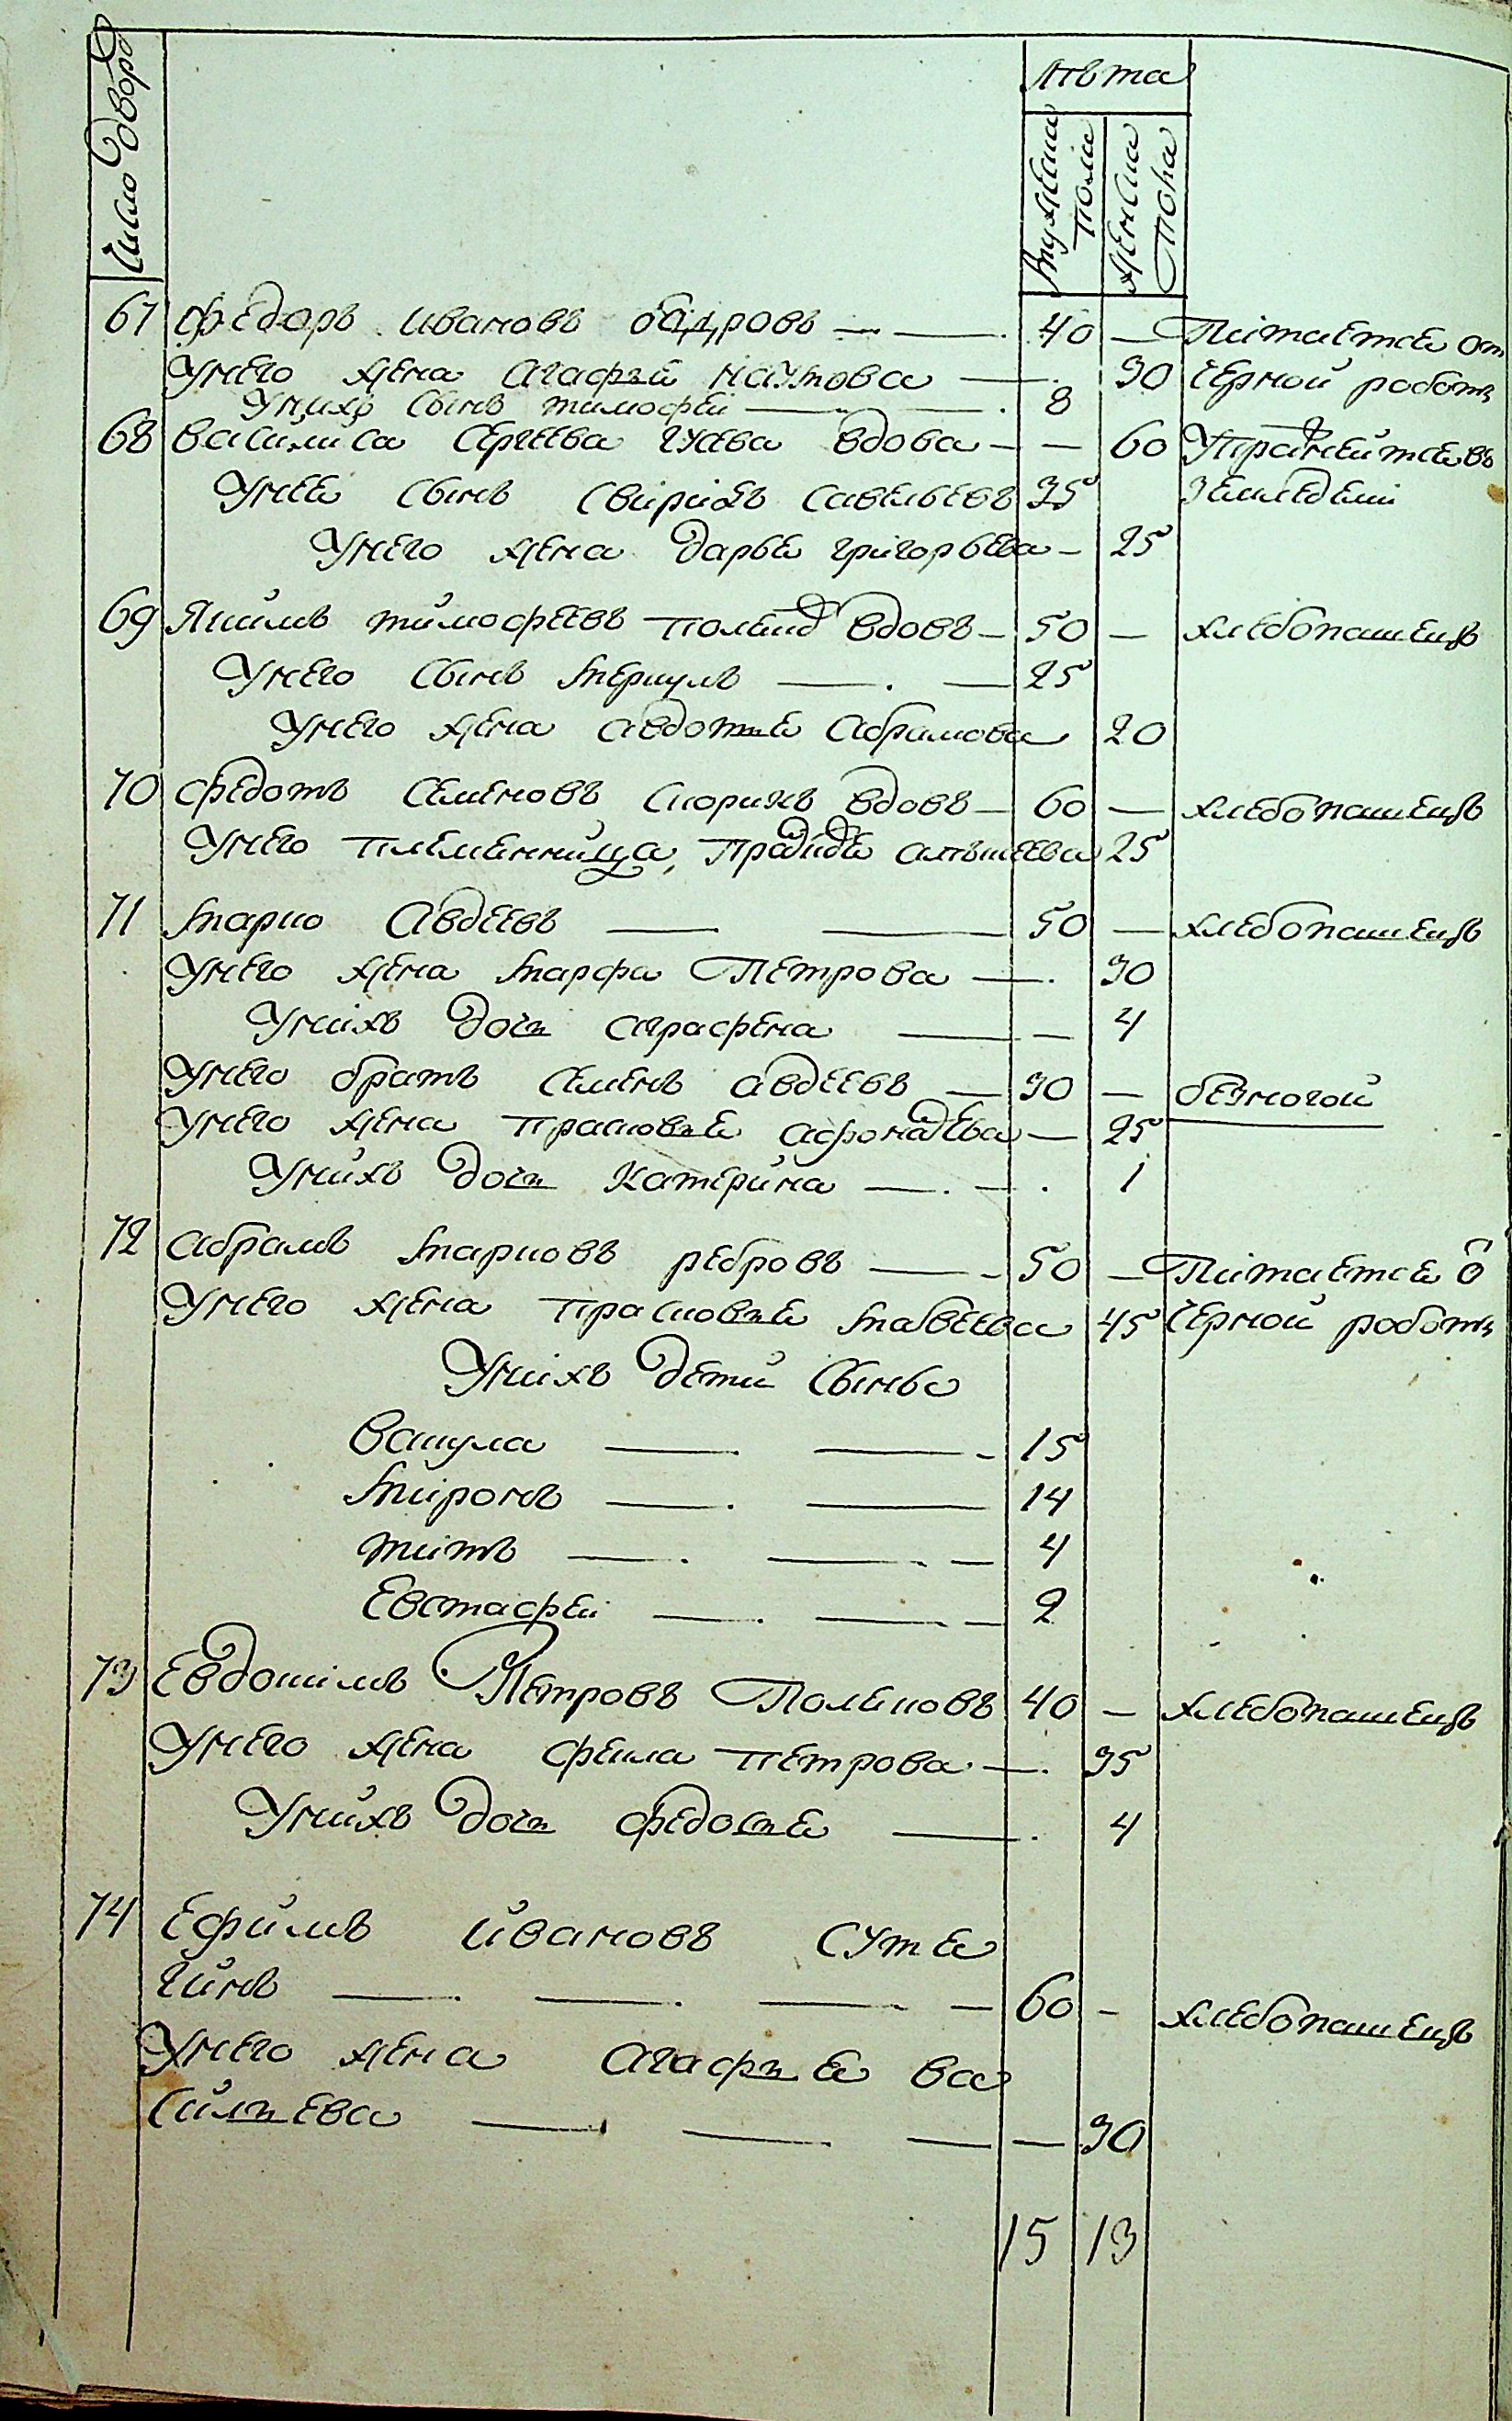 Число дворо
лѣта
мужеска пола
женска пола
67 Федоръ Ивановъ — — 40 — Питается от
Унего жена Агафья Наумова — 30 черной работы
Унихъ сынъ Тимофей — — 8
68 Василиса Сергеева Гусева вдова — — 60 Упражняется въ
Унее сынъ Свиридъ Савельевъ 35 земледелии
Унего жена Дарья Григорьева — 25
69 Якимъ Тимофеевъ вдовъ — 50 — хлебопашецъ
Унего сынъ Меркулъ — — 25
Унего жена Авдотья Абрамова 20
70 Федотъ Семеновъ вдовъ — 60 — хлебопашецъ
Унего племенница, Алексеева 25
71 Марко Авдеевъ — — 50 — хлебопашецъ
Унего жена Марфа Петрова — 30
Унихъ дочь Аграфена — — 4
Унего братъ Семенъ Авдеевъ — 30 — безногой
Унего жена Прасковья — 25
Унихъ дочь Катерина — — 1
72 Абрамъ Марковъ Ребровъ — — 50 — Питается о
Унего жена Прасковья Мавеева 45 черной работы
Унихъ дети сынья
Вакула — — 15
Миронъ — — 14
Титъ — — — 4
Евстафей — — — 2
73 Евдокимъ Петровъ Полековъ 40 — хлебопашецъ
Унего жена Фекла Петрова — 35
Унихъ дочь Федосья — 4
74 Ефимъ Ивановъ Сутя
гинъ — — — — 60 — хлебопашецъ
Унего жена Агафья Ва
сильева — — — — 30
15 13